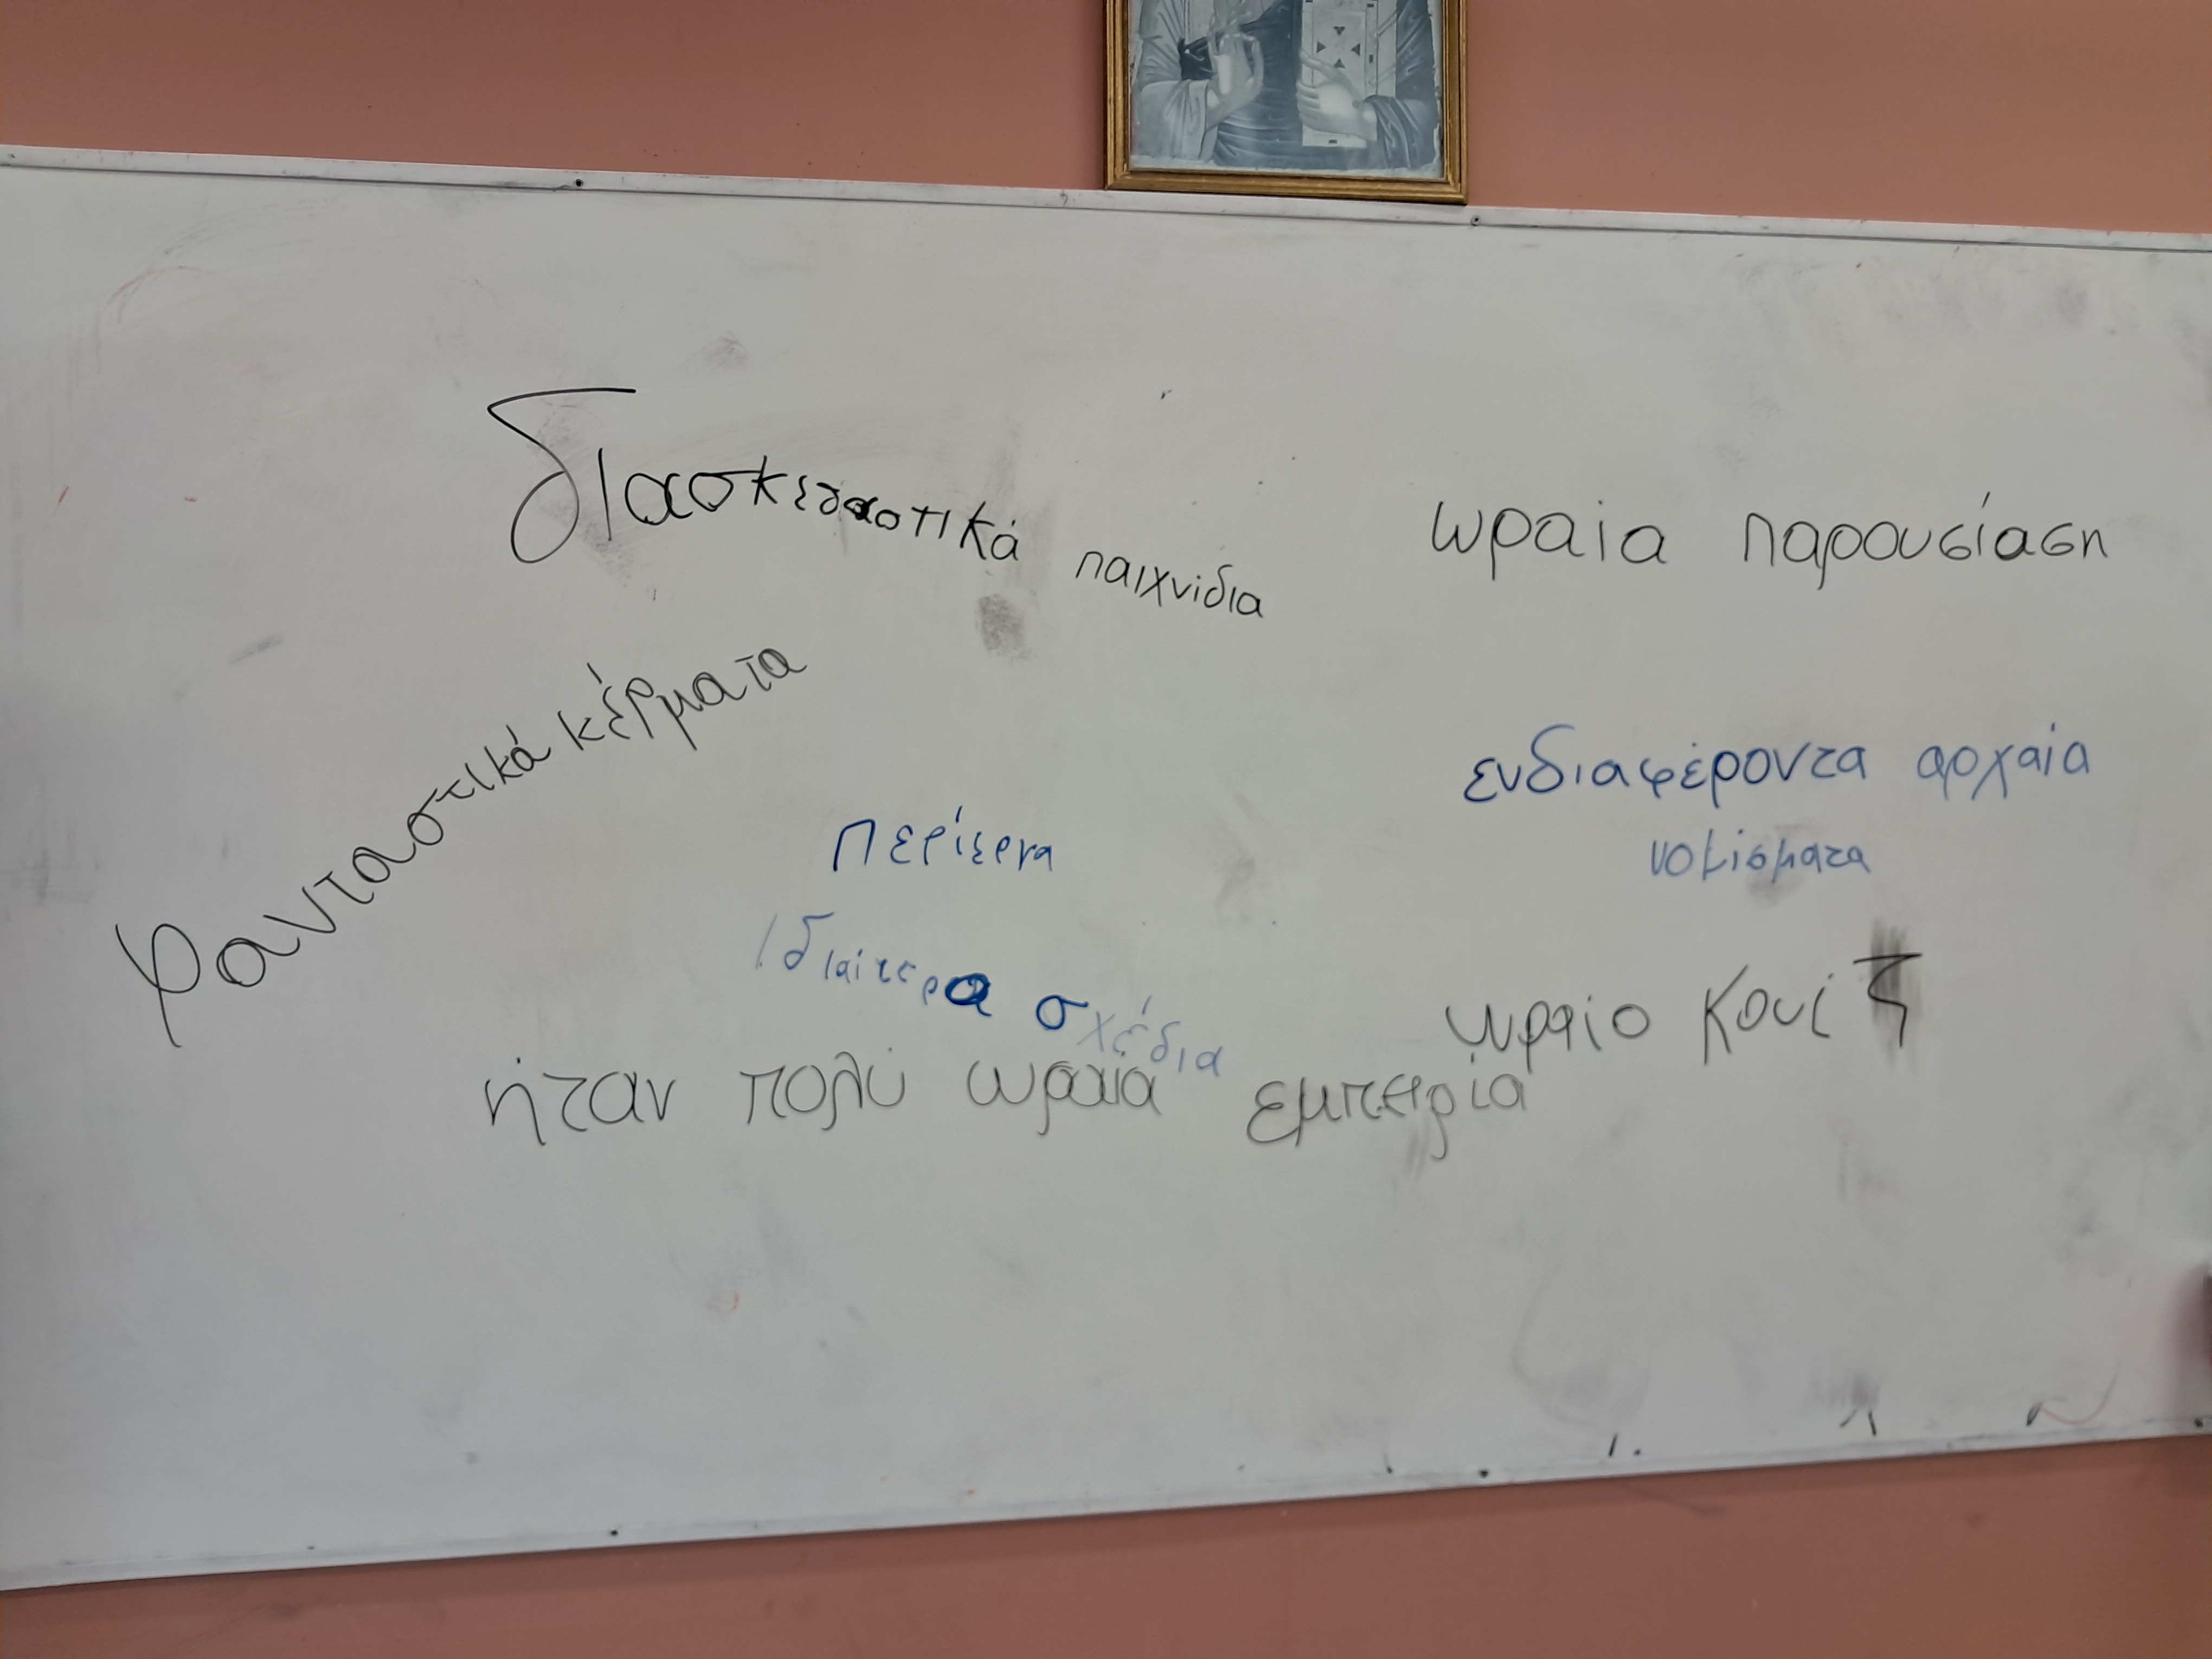 διασκεδαστικά παιχνίδια
ωραία παρουσίαση
φανταστικά κέρματα
ενδιαφέροντα αρχαία
νομίσματα
περίεργα
Ιδιαίτερα σχέδια
ωραίο κουίζ
ήταν πολύ ωραία εμπειρία